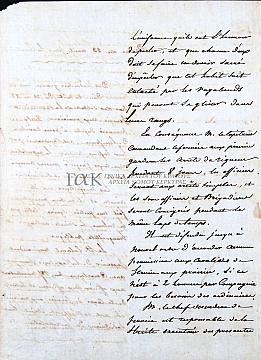 l'uniforme qu'ils ont l'honneur
de porter, et que chacun d'eux
doit se faire un devoir sacré
d'empêcher que cet habit soit
par les vagabonds
qui peuvent se glisser dans
leurs rangs.
En conséquence M. le Capitaine
Commandant
garder les arrêts de rigueur
pendant 8 jours, les officiers
seront aux arrêts simples, et
les sous officiers et Brigadiers
seront consignés pendant le
même laps de temps.
ΓΑΚ ΓΕΝΙΚΑ ΑΡΧΕΙΑ ΤΟΥ ΚΡΑΤΟΥΣ
ΑΡΧΕΙΑ ΝΟΜΟΥ ΚΕΡΚΥΡΑΣ
Il est défendu jusqu'à
nouvel ordre d'accorder aucune
permission aux
si ce
n'est à 2 hommes par Compagnie
pour les besoins des ordinaires.
M. le chef
est responsable de la
stricte exécution du présent